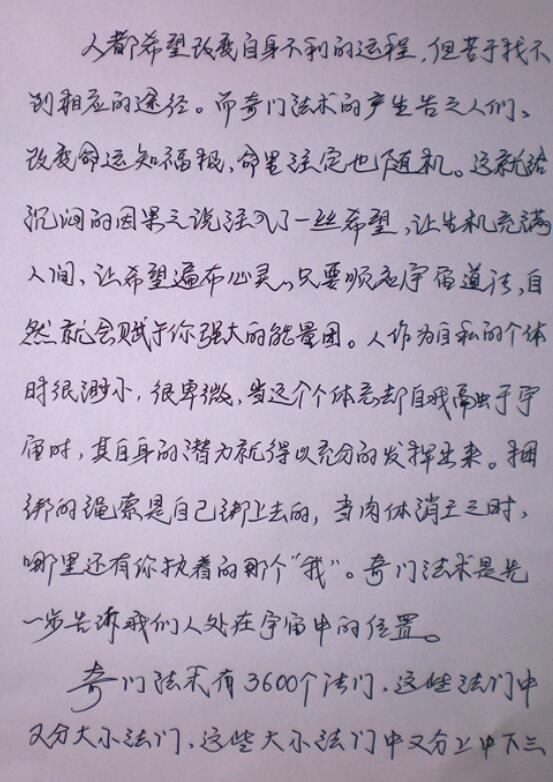 人都希望改变自身不利的运程，但苦于找不
到相应的途径。而奇门法术的产生告之人们、
改变命运知福祸，命里注定也随机。这就给
沉闷的因果之说注入了一丝希望，让生机充满
人间，让希望遍布心灵，只要顺应宇宙道法，自
然就会赋于你强大的能量团。人作为自私的个体
时很渺小，很卑微，当这个个体忘却自我融虫于宇
宙时，其自身的潜力就得以充分的发挥出来。捆
绑的绳索是自己绑上去的，当肉体消亡之时，
哪里还有你执着的那个"我"。奇门法术是先
一步告诉我们人处在宇宙中的位置。
奇门法术有3600个法门，这些法门中
又分大小法门，这些大小法门中又分上中下三